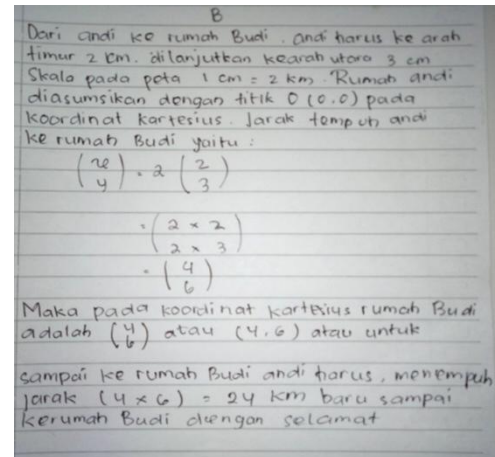 B
Dari andi ke rumah Budi. andi harus ke arah
timur 2 km. dilanjutkan kearah utara 3 cm
Skala pada peta 1 cm = 2 km. Rumah andi
diasumsikan dengan titik O (0.0) pada
koordinat kartesius. Jarak tempuh andi
ke rumah Budi yaitu :
(x y) = 2 (2 3)
= (2 x 2 2 x 3)
= (4 6)
Maka pada koordinat kartesius rumah Budi
adalah (4 6) atau (4.6) atau untuk
sampai ke rumah Budi andi harus, menempuh
jarak (4 x 6) = 24 km baru sampai
kerumah Budi dengan selamat